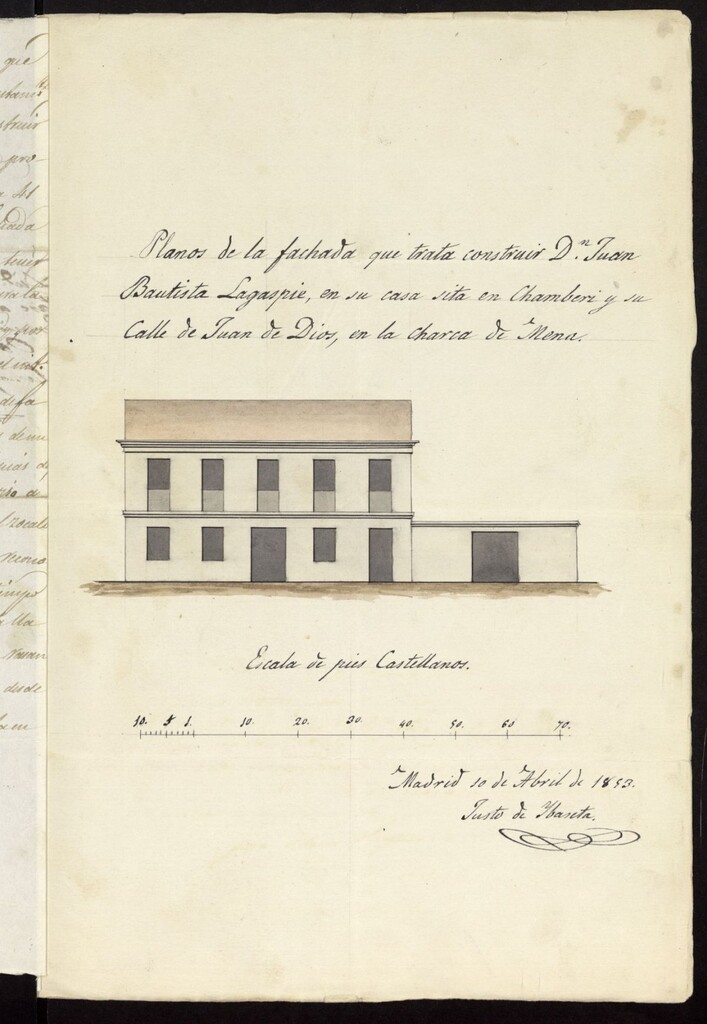 Planos de la fachada que trata construir D.n Juan
Bautista Lagaspie, en su casa sita en Chamberi y su
Calle de Juan de Dios, en la charca de Mena.
Escala de pies Castellanos.
10. 5 1. 10. 20. 30. 40. 50. 60 70.
Madrid 10 de Abril de 1853.
Justo de Ybaseta.
que
pro
41
desde